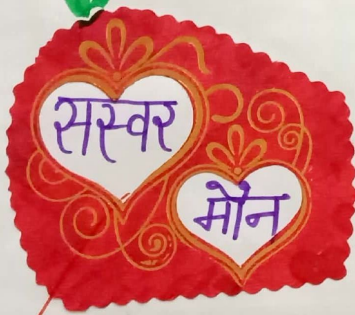 सस्वर
मौन